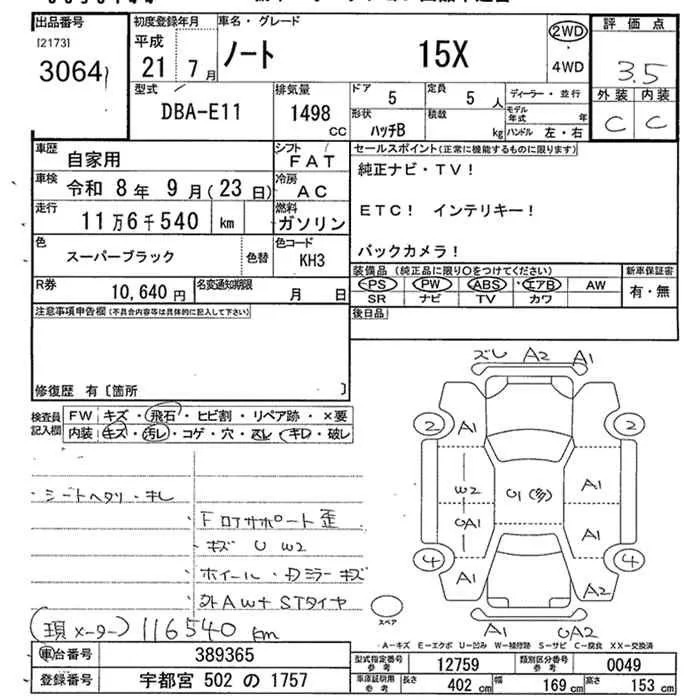 出品番号 初度登録年月 車名・グレード 2WD 評価点
[2173] 平成
3064 21 7月 ノート 15X 4WD 3.5
型式 排気量 ドア 5 定員 5人 ディーラー・並行 外装 内装
DBA-E11 1498cc 形状 ハッチB 積載 kg モデル年式 年 ハンドル 左・右 C C
車歴 自家用 シフト FAT セールスポイント(正常に機能するものに限ります)
車検 令和 8年 9月(23日) 冷房 AC 純正ナビ・TV!
走行 11万6千540 km 燃料 ガソリン ETC! インテリキー!
色 スーパーブラック 色替 色コード KH3 バックカメラ!
R券 10,640円 名変通知期限 月 日 装備品(純正品に限り○をつけてください) 新車保証書
PS PW ABS エアB AW 有・無
SR ナビ TV カワ
注意事項申告欄(不具合内容等は具体的に記入して下さい) 後日品
修復歴 有〔箇所 〕
検査員記入欄 FW キズ・飛石・ヒビ割・リペア跡・×要
内装 キズ・汚レ・コゲ・穴・スレ・キレ・破レ
ズレ A2 A1
2 A1 2
W2 U1(多) A1
UA1 A1
4 A1 A2 4
A1 UA2
スペア
・シートヘタリ・キレ
・Fロアサポート歪
・キズ U W2
・ホイール・Dミラーキズ
外AW+STタイヤ
(現メーター)116540km
A-キズ E-エクボ U-凹み W-補修跡 S-サビ C-腐食 XX-交換済
車台番号 389365 型式指定番号 参考 12759 類別区分番号 参考 0049
登録番号 宇都宮 502 の 1757 車庫証明用 参考 長さ 402cm 幅 169cm 高さ 153cm